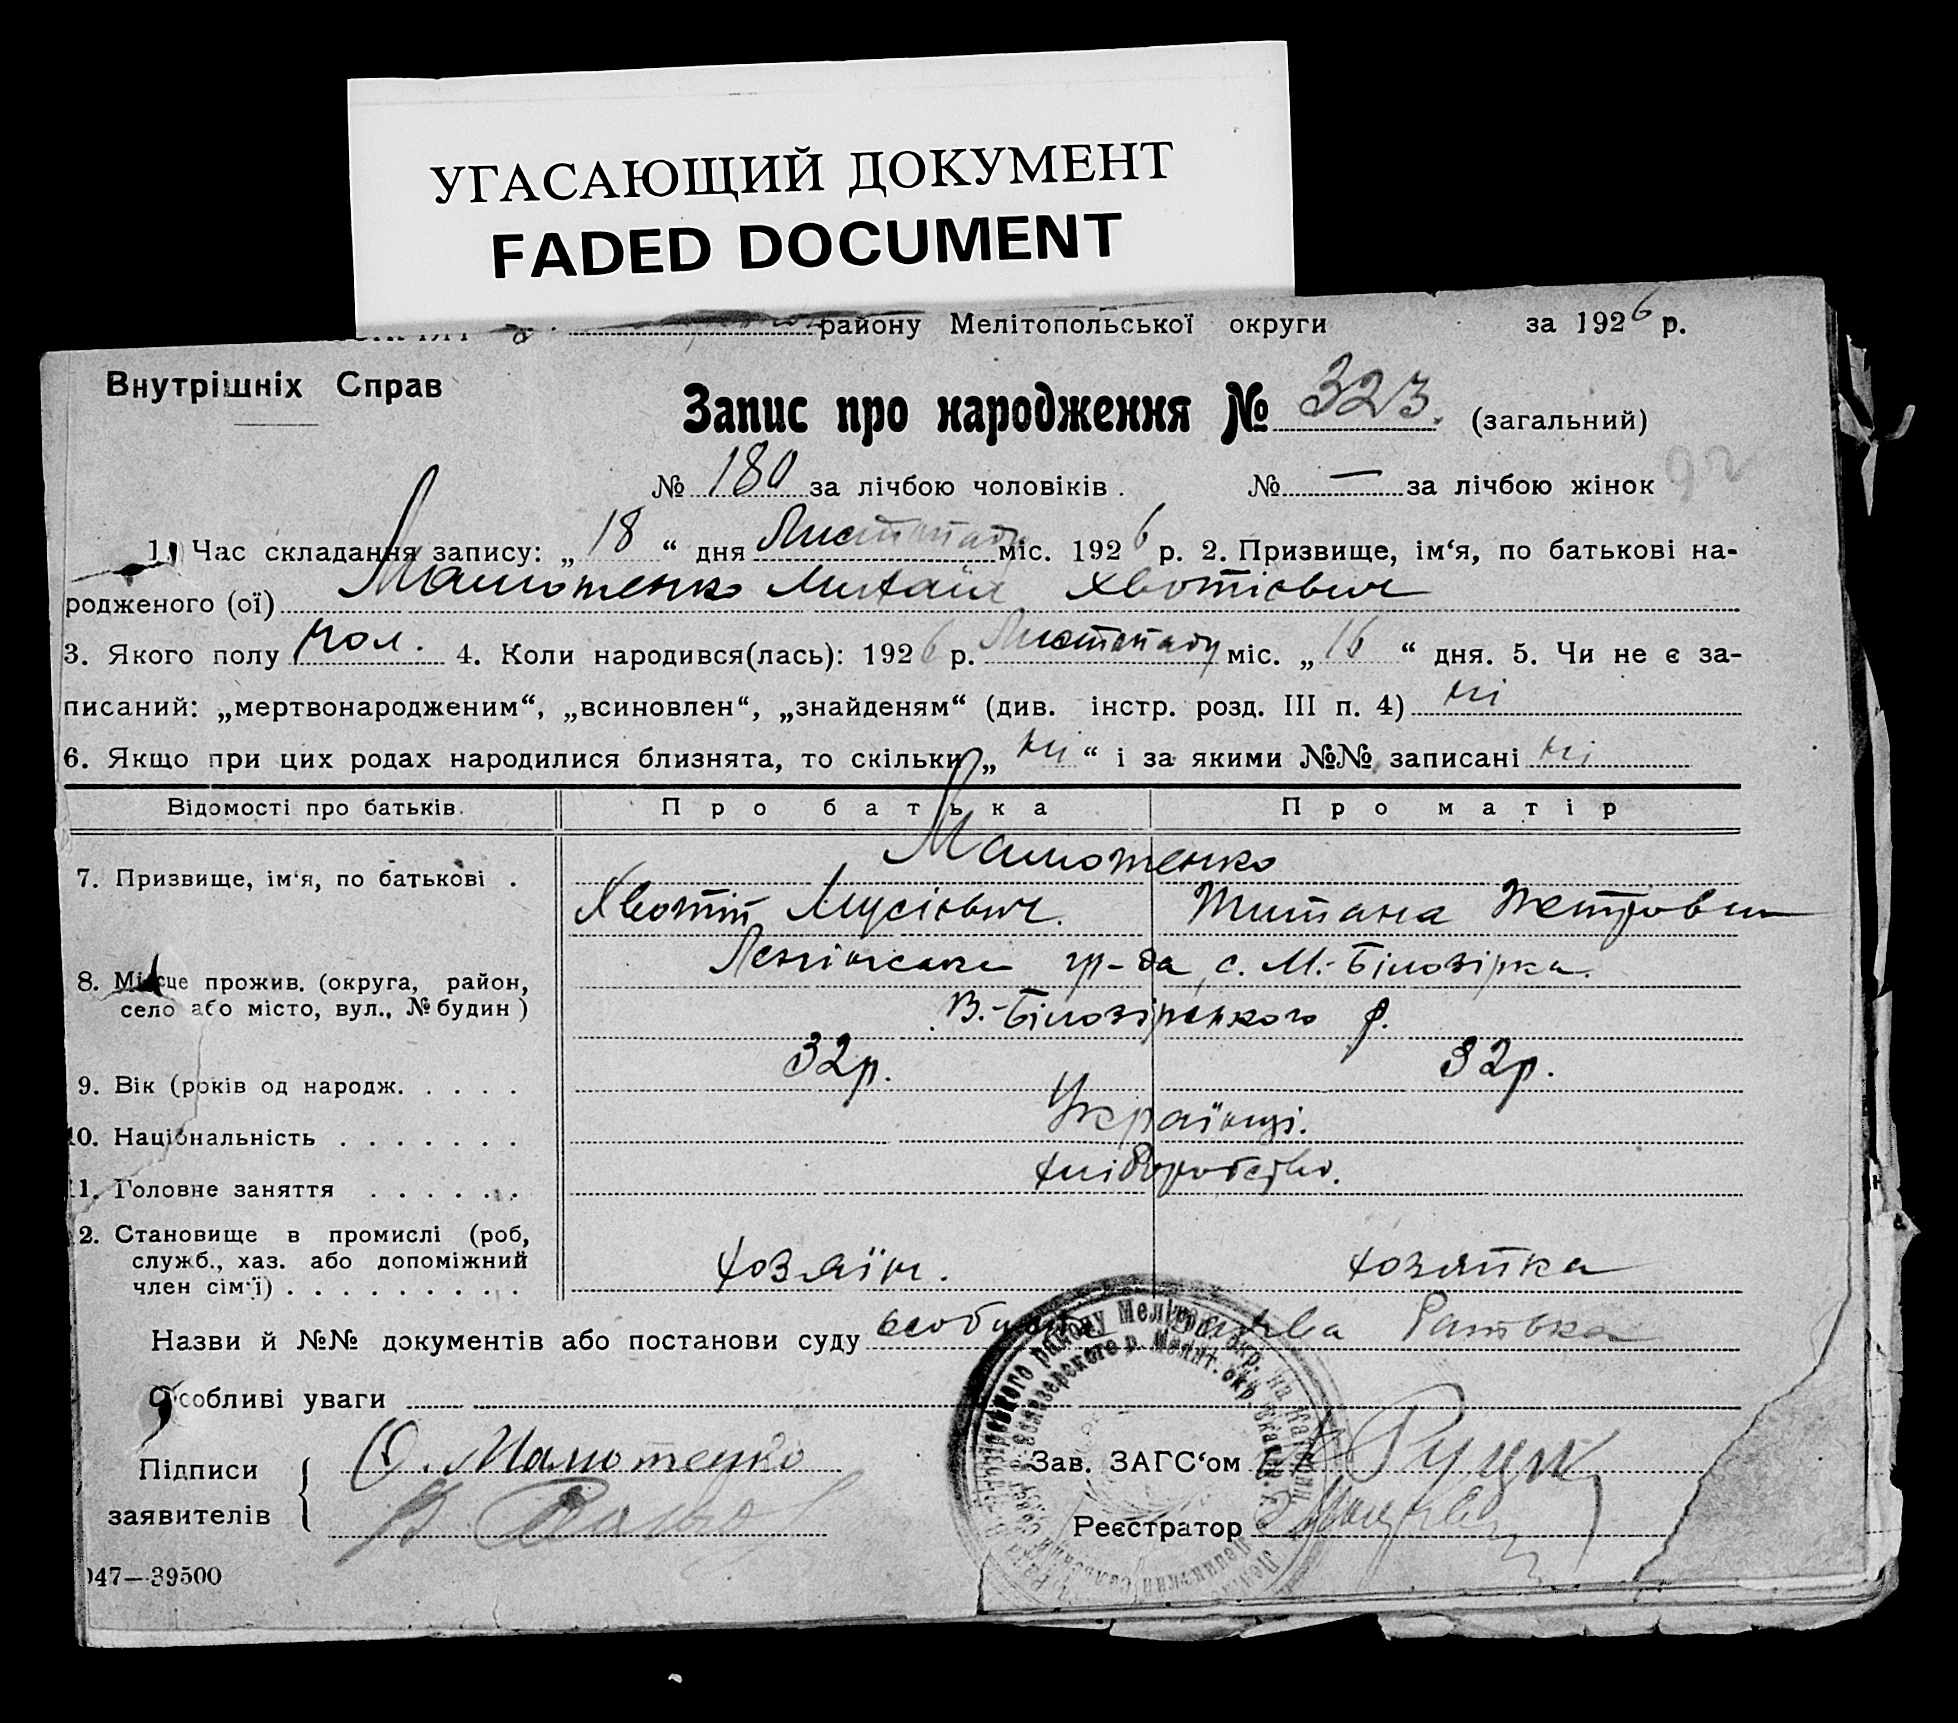 УГАСАЮЩИЙ ДОКУМЕНТ
FADED DOCUMENT
району Мелітопольської округи за 1926 р.
Внутрішніх Справ
Запис про народження № 323. (загальний)
№ 180 за лічбою чоловіків. № — за лічбою жінок 92
1. Час складання запису: „18“ дня Листопаду міс. 1926 р. 2. Призвище, ім‘я, по батькові на-
родженого (ої) Малютенко Михаіл Хвотієвич
3. Якого полу чол. 4. Коли народився(лась): 1926 р. Листопаду міс. „16“ дня. 5. Чи не є за-
писаний: „мертвонародженим“, „всиновлен“, „знайденям“ (див. інстр. розд. III п. 4) ні
6. Якщо при цих родах народилися близнята, то скільки „ні“ і за якими №№ записані ні
Відомості про батьків. Про батька Про матір
Малютенко
7. Призвище, ім‘я, по батькові .
Хвотій Мусієвич. Титана Петровна
Ленінська гр-да, с. М.-Білозірка.
8. Місце прожив. (округа, район,
село або місто, вул., № будин)
В.-Білозірського р.
32р. 32р.
9. Вік (років од народж. . . . .
Українці.
10. Національність . . . . . . .
хліборобство.
11. Головне заняття . . . . . .
2. Становище в промислі (роб,
служб., хаз. або допоміжний
член сім‘ї) . . . . . . . . .
хозяїн. хозяйка
Назви й №№ документів або постанови суду особиста заява Батька
Особливі уваги
Підписи
заявителів
Малютенко
Зав. ЗАГС‘ом
Реєстратор
047—39500